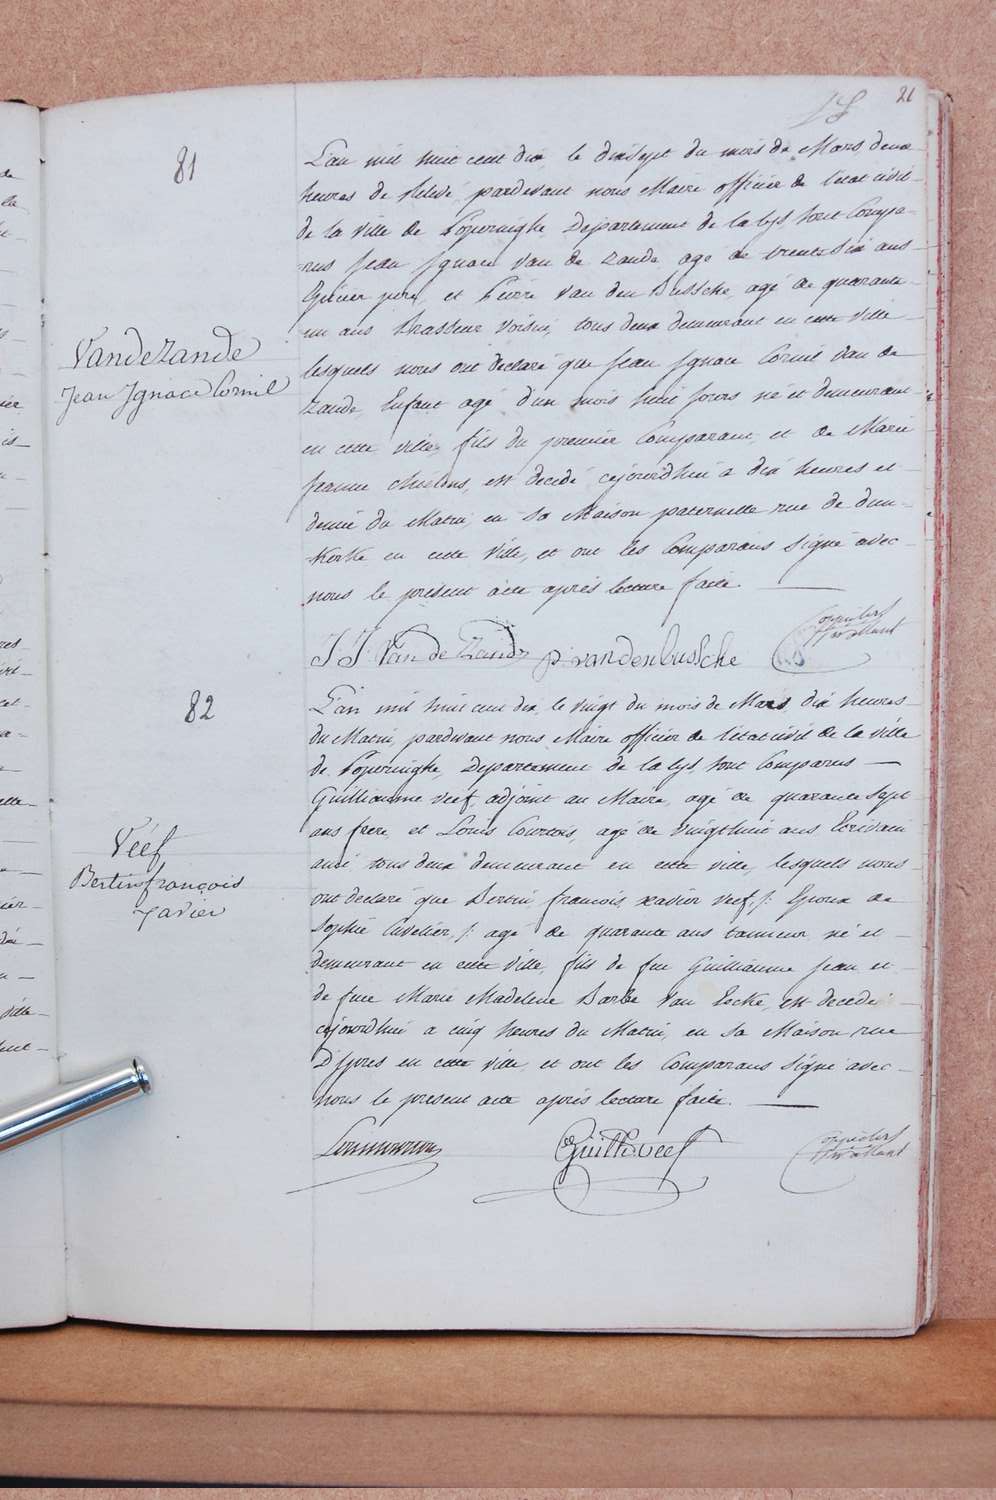 21
81
L'an mil huit cent dix le dixsept du mois de Mars deux
heures de relevé, pardevant nous Maire officier de l'état civil
de la ville de Poperinghe, Departement de la lys, sont Compa-
rus Jean Ignace Van de Zande agé de trente six ans
Epicier pere, et Pierre Van den Bussche, agé de quarante
un ans brasseur Voisin, tous deux demeurant en cette Ville
lesquels nous ont declaré que Jean Ignace Cornil Van de
Zande, Enfant agé d'un mois huit Jours né et demeurant
en cette ville, fils du premier Comparant, et de Marie
Jeanne est decedé cejourdhui a dix heures et
demie du Matin en Sa Maison paternelle rue de dun-
Kerke en cette Ville, et ont les Comparans Signé avec
nous le present acte après lecture faite.
Van de Zande
Jean Ignace Cornil
J: J: Van de Zande p: vandenbussche
82
L'an mil huit cent dix, le vingt du mois de Mars, dix heures
du Matin, pardevant nous Maire officier de l'état civil de la ville
de Poperinghe, Departement de la lys, sont Comparus
Guilliaume Veef, adjoint au Maire, agé de quarante Sept
ans frere, et Louis Courtois, agé de Vingthuit ans, Ecrivain
ami tous deux demeurant en cette ville, lesquels nous
ont declaré que Bertin, francois, xavier Veef, /: Epoux de
Sophie Cuvelier, :/ agé de quarante ans tanneur, né et
demeurant en cette Ville, fils de feu Guilliaume Jean et
de feue Marie Madeleine Barbe Van Eecke, est decedé
cejourdhui a cinq heures du Matin, en Sa Maison rue
D'Ypres en cette ville, et ont les Comparans Signé avec
nous le present acte après lecture faite.
Véef
Bertin françois
Xavier
Guill: veef